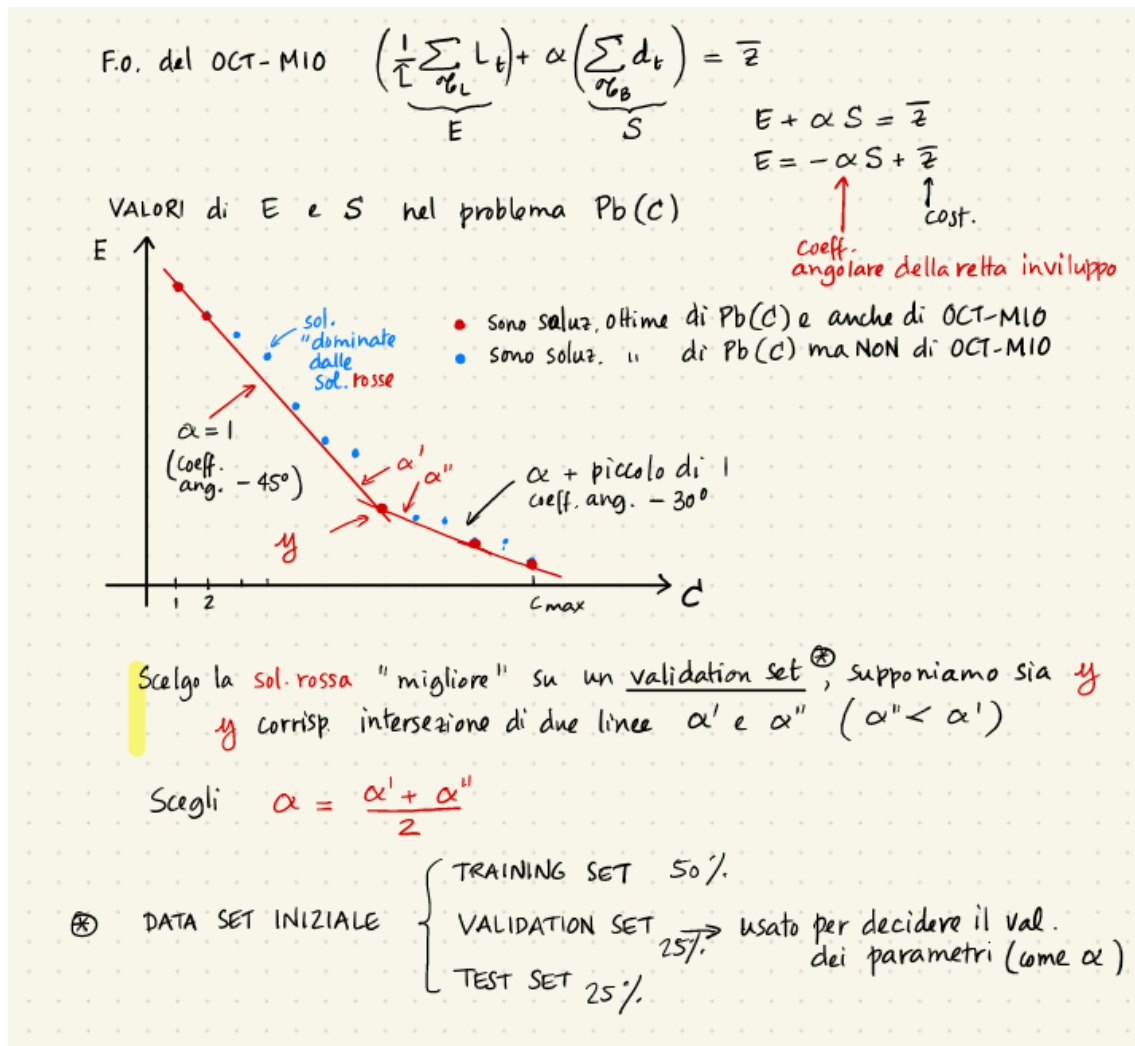 F.o. del OCT-MIO (1/L̂ ∑_{𝒯_L} L_t) + α (∑_{𝒯_B} d_t) = z̄
E S
E + α S = z̄
E = - α S + z̄
cost.
coeff.
angolare della retta inviluppo
VALORI di E e S nel problema Pb(C)
E
sol.
"dominate
dalle
sol. rosse
• sono soluz. ottime di Pb(C) e anche di OCT-MIO
• sono soluz. " di Pb(C) ma NON di OCT-MIO
α = 1
(coeff.
ang. - 45°)
α'
α"
α + piccolo di 1
coeff. ang. - 30°
y
1 2 Cmax C
Scelgo la sol. rossa "migliore" su un validation set ⊛, supponiamo sia y
y corrisp. intersezione di due linee α' e α" (α" < α')
Scegli α = (α' + α")/2
⊛ DATA SET INIZIALE
TRAINING SET 50%
VALIDATION SET 25% → usato per decidere il val.
dei parametri (come α)
TEST SET 25%